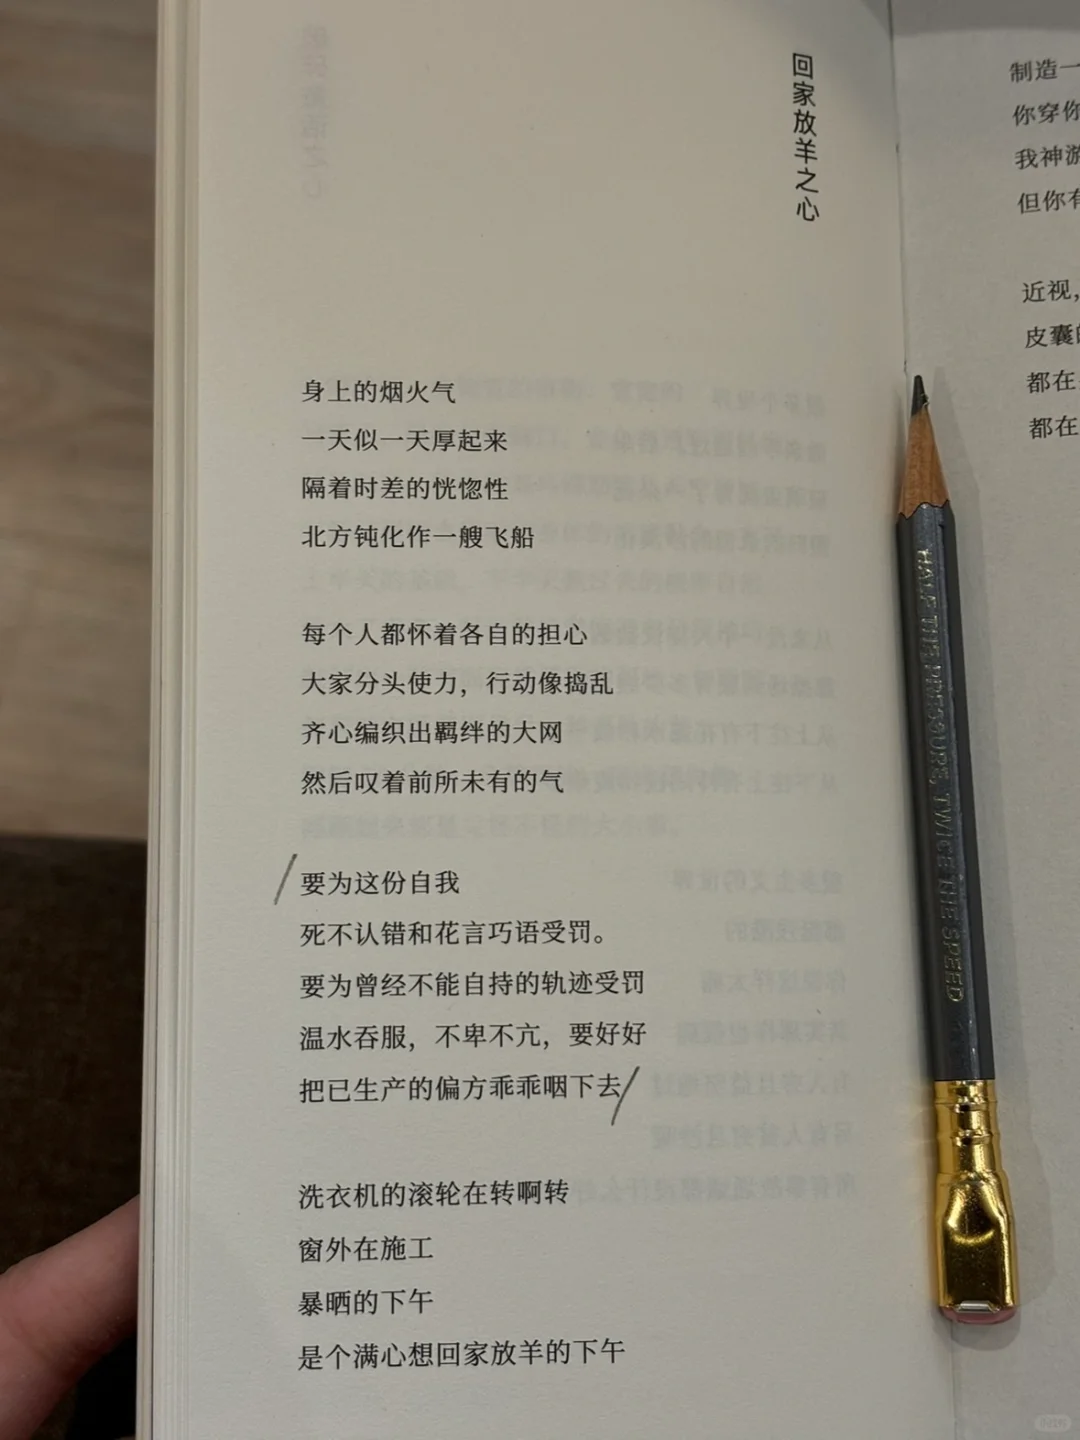 回家放羊之心
身上的烟火气
一天似一天厚起来
隔着时差的恍惚性
北方钝化作一艘飞船
每个人都怀着各自的担心
大家分头使力，行动像捣乱
齐心编织出羁绊的大网
然后叹着前所未有的气
要为这份自我
死不认错和花言巧语受罚。
要为曾经不能自持的轨迹受罚
温水吞服，不卑不亢，要好好
把已生产的偏方乖乖咽下去
洗衣机的滚轮在转啊转
窗外在施工
暴晒的下午
是个满心想回家放羊的下午
制造一
你穿你
我神游
但你有
近视，
皮囊的
都在
都在
HALF THE PRESSURE, TWICE THE SPEED